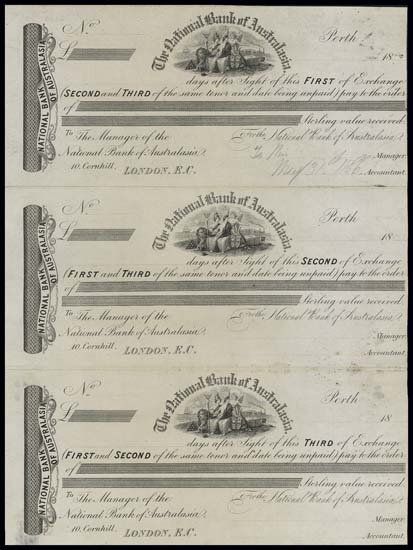 No
The National Bank of Australasia.
Perth
18
£
days after Sight of this FIRST of Exchange
(SECOND and THIRD of the same tenor and date being unpaid) pay to the order
of
Sterling value received.
To The Manager of the
National Bank of Australasia,
10, Cornhill,
LONDON, E.C.
For the National Bank of Australasia,
Manager
Accountant.
NATIONAL BANK
OF AUSTRALASIA
No
The National Bank of Australasia.
Perth
18
£
days after Sight of this SECOND of Exchange
(FIRST and THIRD of the same tenor and date being unpaid) pay to the order
of
Sterling value received.
To The Manager of the
National Bank of Australasia,
10, Cornhill,
LONDON, E.C.
For the National Bank of Australasia,
Manager
Accountant.
NATIONAL BANK
OF AUSTRALASIA
No
The National Bank of Australasia.
Perth
18
£
days after Sight of this THIRD of Exchange
(FIRST and SECOND of the same tenor and date being unpaid) pay to the order
of
Sterling value received.
To The Manager of the
National Bank of Australasia,
10, Cornhill,
LONDON, E.C.
For the National Bank of Australasia,
Manager
Accountant
NATIONAL BANK
OF AUSTRALASIA